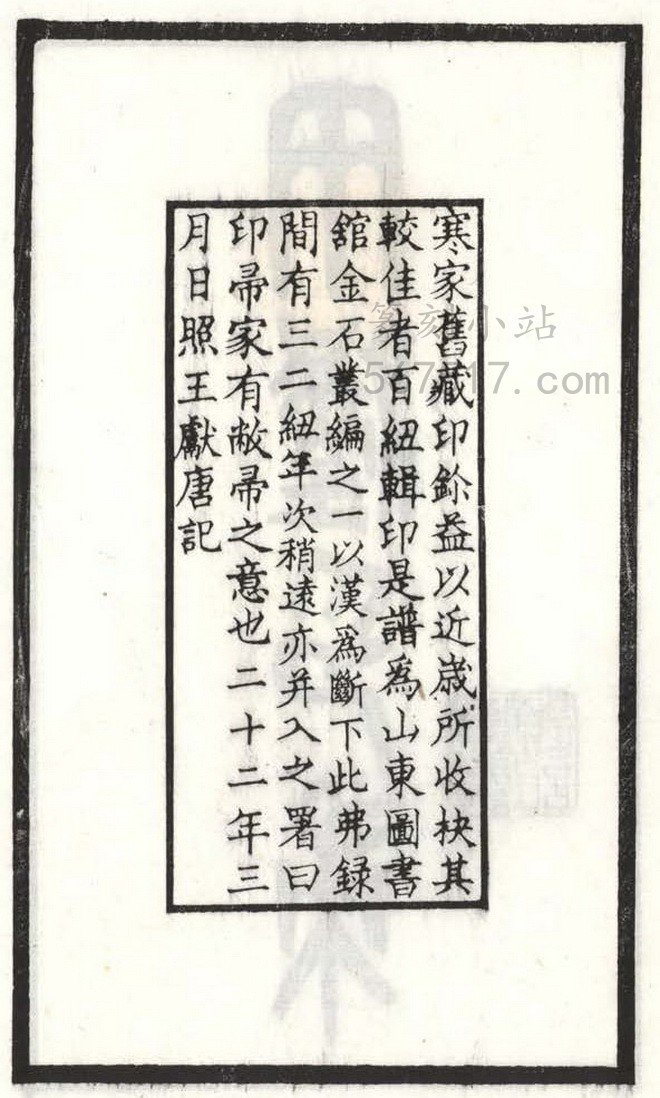 寒家舊藏印餘益以近歲所收抉其
較佳者百紐輯印是譜為山東圖書
館金石叢編之一以漢為斷下此弗録
間有三二紐年次稍遠亦并入之署曰
印帚家有敝帚之意也二十二年三
月日照王獻唐記
篆刻小站